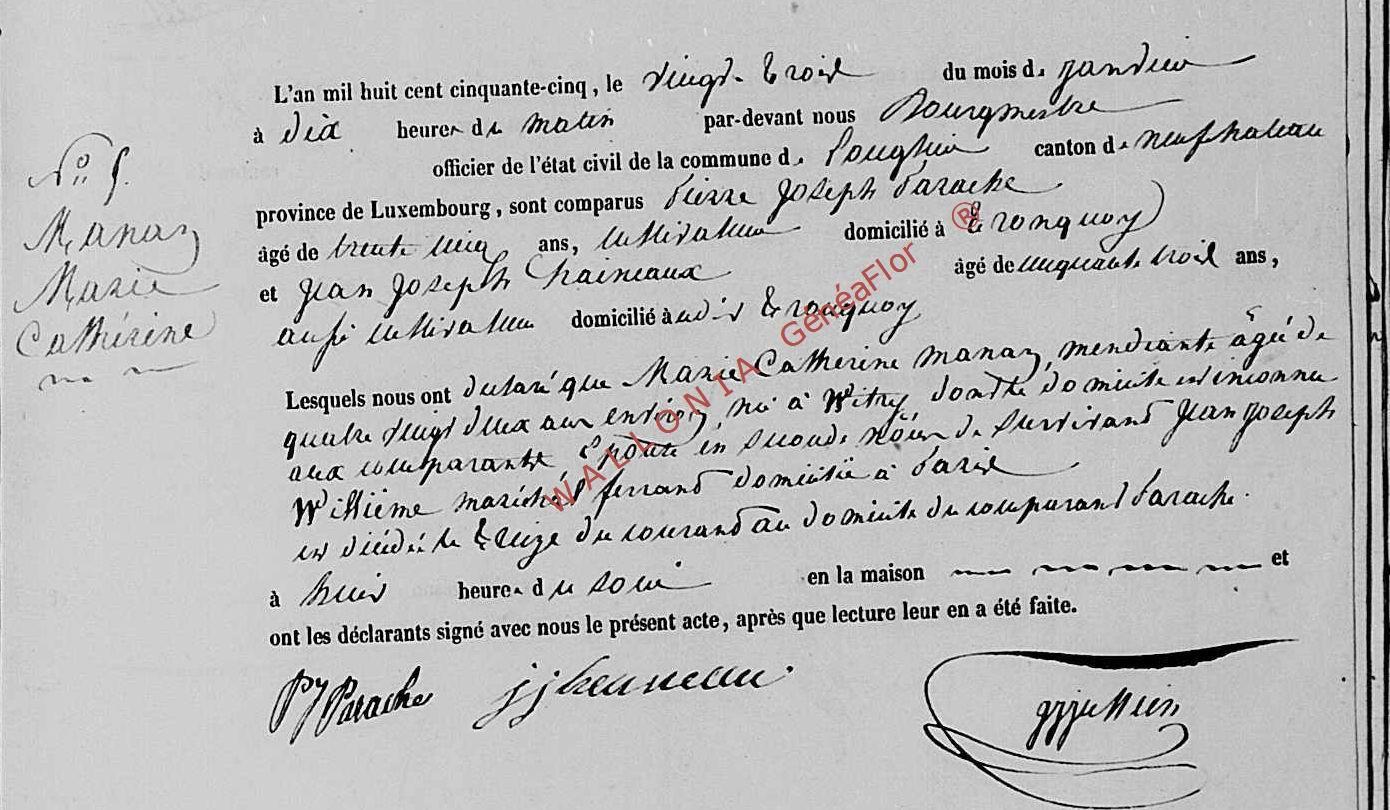 L'an mil huit cent cinquante-cinq, le vingt-trois du mois de janvier
à dix heures du matin par-devant nous Bourgmestre
officier de l'état civil de la commune de Longlier canton de neufchateau
province de Luxembourg, sont comparus Pierre Joseph Parache
âgé de trente cinq ans, cultivateur domicilié à Tronquoy
et Jean Joseph Chaineaux âgé de cinquante trois ans,
aussi cultivateur domicilié à Tronquoy
Lesquels nous ont déclaré que Marie Catherine Manay, mendiante âgée de
quatre vingt deux ans environ, née à Witry, dont le domicile est inconnu
aux comparants, Epouse en seconde nôces de survivant Jean Joseph
Willième maréchal ferrant domicilié à Paris
est décédée le treize du courant au domicile du comparant Parache.
à huit heures du soir en la maison et
ont les déclarants signé avec nous le présent acte, après que lecture leur en a été faite.
N° 5.
Manay
Marie
Cathérine
PJ Parache
WALLONIA GénéaFlor ®